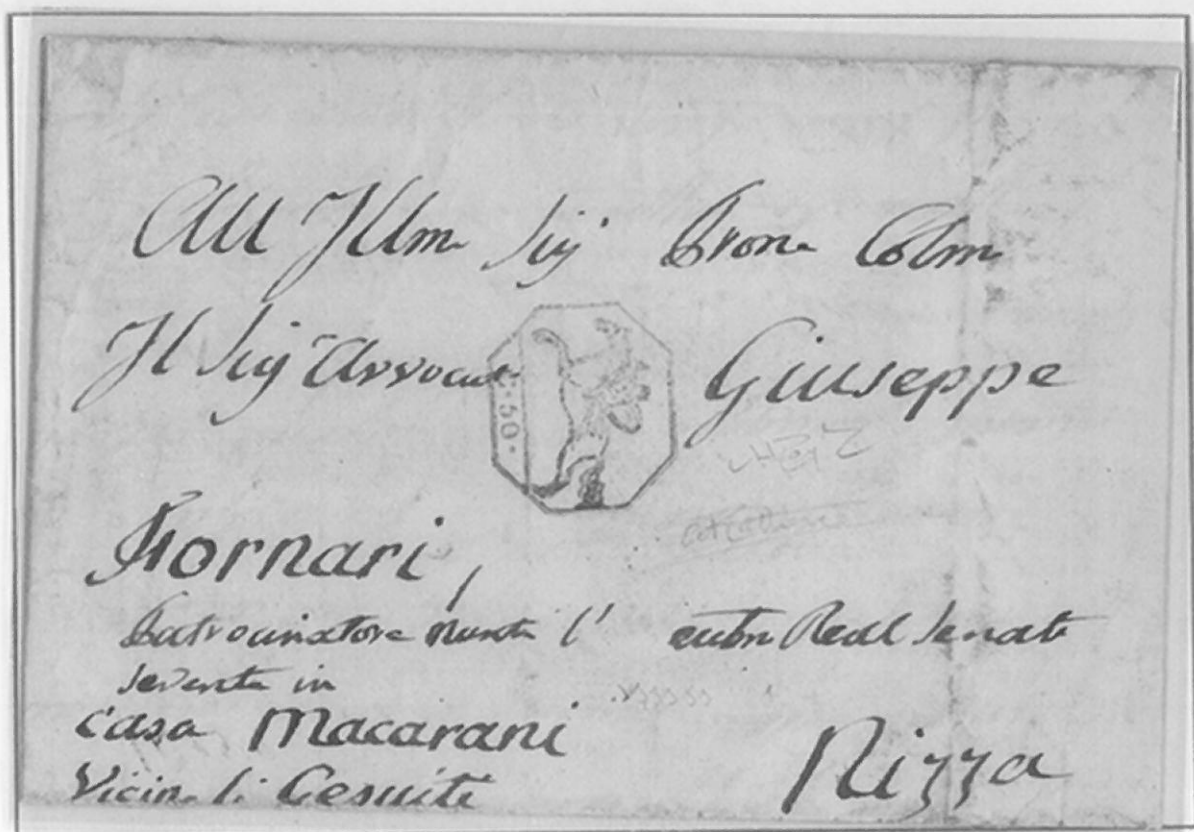 All Illm Sig Prone Colm
Il Sig Avvocat Giuseppe
C. 50.
Fornari,
Patrocinatore l' Real Senato
in
Casa Macarani
Vicin. li Gesuiti
Nizza